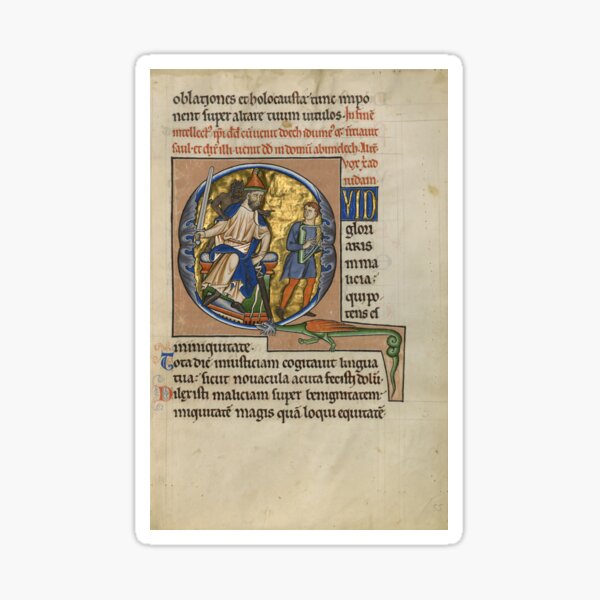 oblationes et holocausta tunc impo
nent super altare tuum uitulos. In finē
cū uenit doech
saul et illi. uenit in domū abimelech.
uox ad
iudam.
QUID
glori
aris
in ma
licia:
qui po
tens es
in iniquitate.
Tota die iniusticiam cogitauit lingua
tua: sicut nouacula acuta fecisti dolū.
Dilexisti maliciam super benignitatem:
iniquitatē magis quā loqui equitatē
55